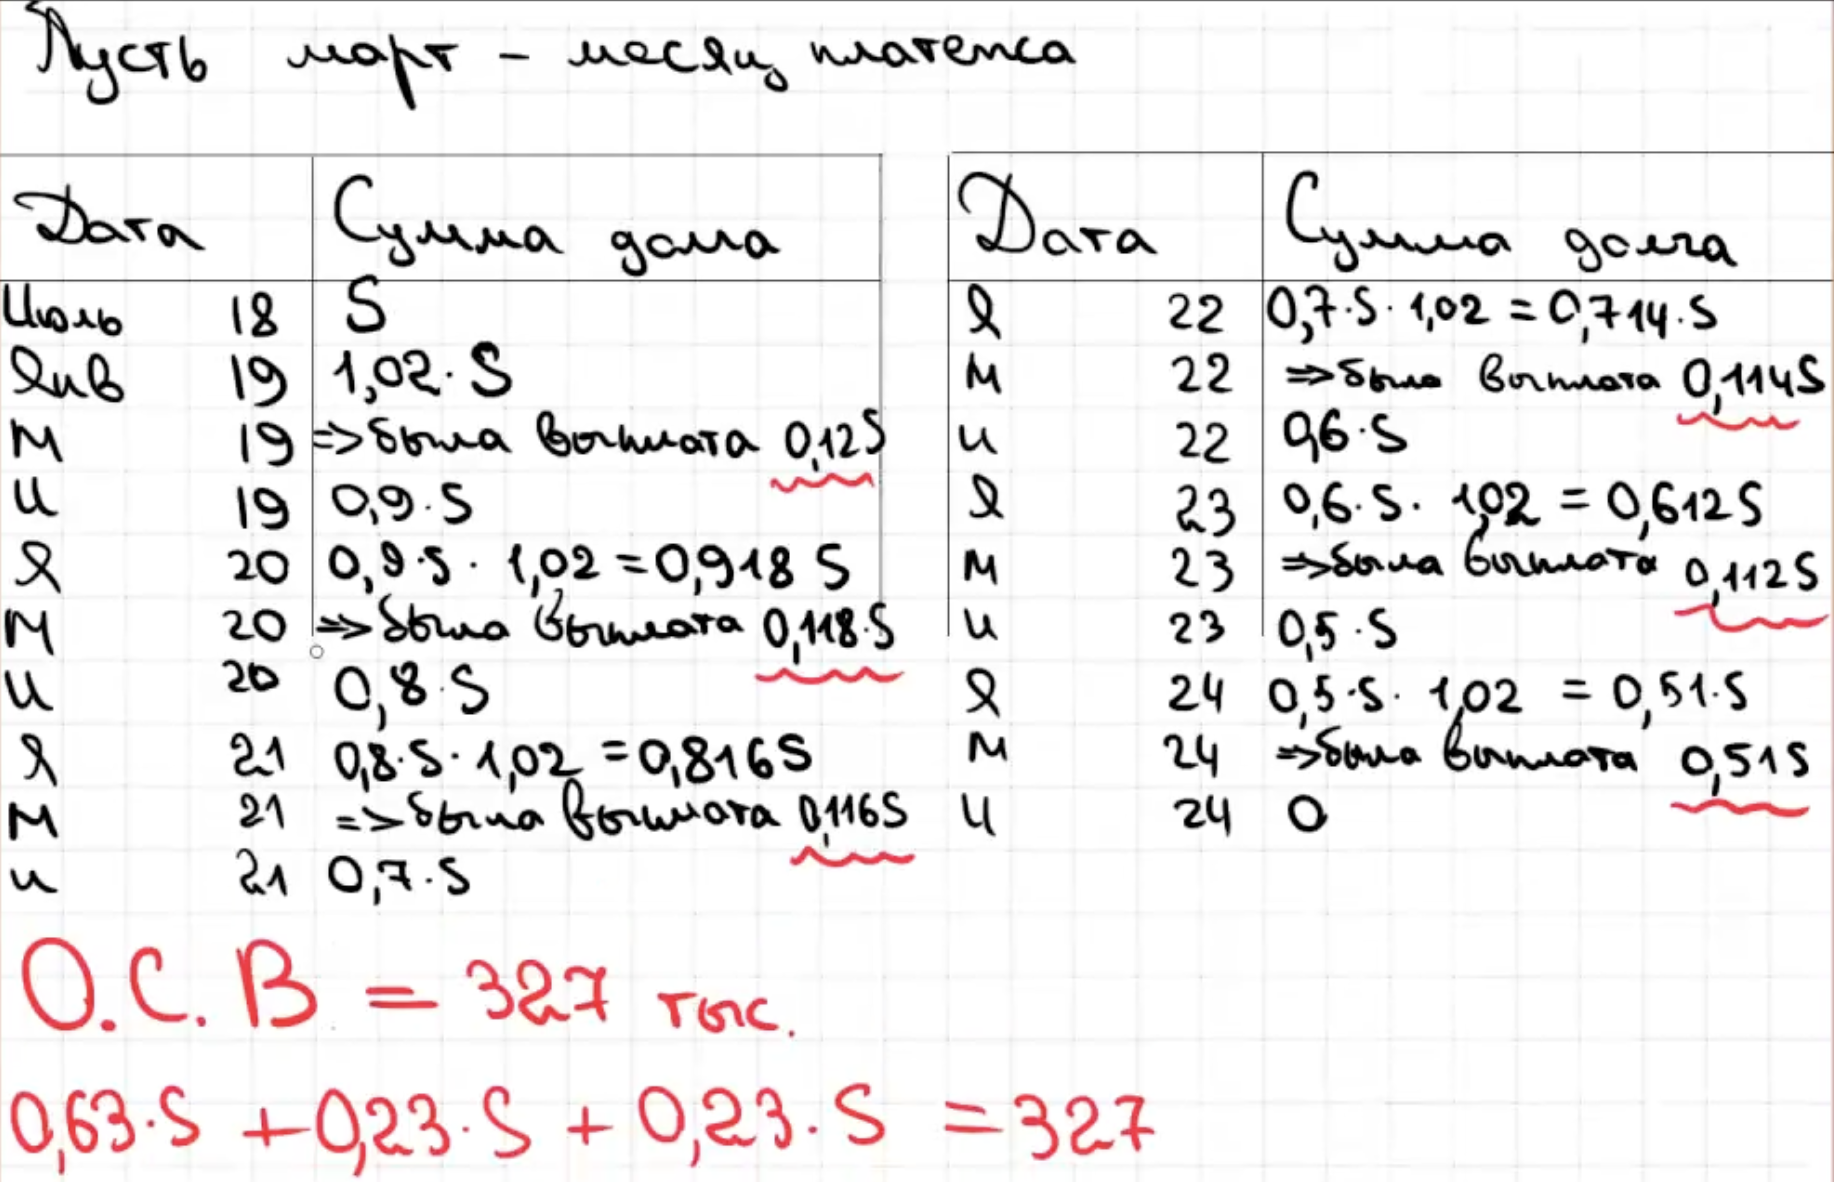 Пусть март - месяц платежа
Дата Сумма долга
Июль 18 S
Янв 19 1,02·S
М 19 => была выплата 0,12S
И 19 0,9·S
Я 20 0,9·S·1,02=0,918 S
М 20 => была выплата 0,118·S
И 20 0,8·S
Я 21 0,8·S·1,02=0,816S
М 21 => была выплата 0,116S
И 21 0,7·S
Дата Сумма долга
Я 22 0,7·S·1,02=0,714·S
М 22 => была выплата 0,114S
И 22 0,6·S
Я 23 0,6·S·1,02=0,612S
М 23 => была выплата 0,112S
И 23 0,5·S
Я 24 0,5·S·1,02=0,51·S
М 24 => была выплата 0,51S
И 24 0
О.С.В = 327 тыс.
0,63·S+0,23·S+0,23·S=327